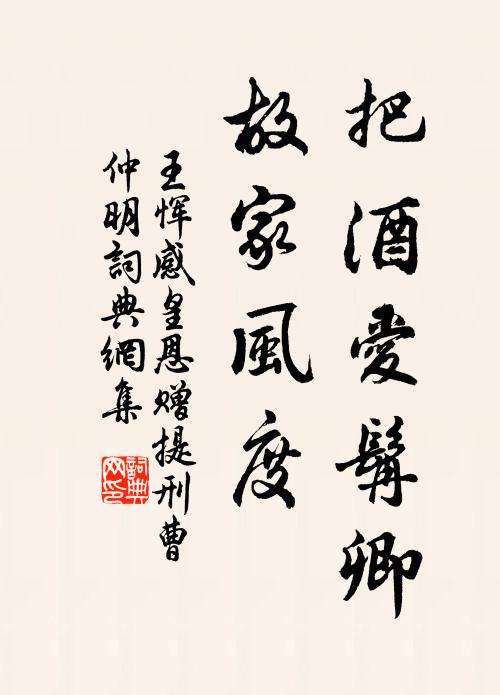 把酒愛髯卿
故家風度
王惲感皇恩贈提刑曹
仲明詞典網集
詞典
网印